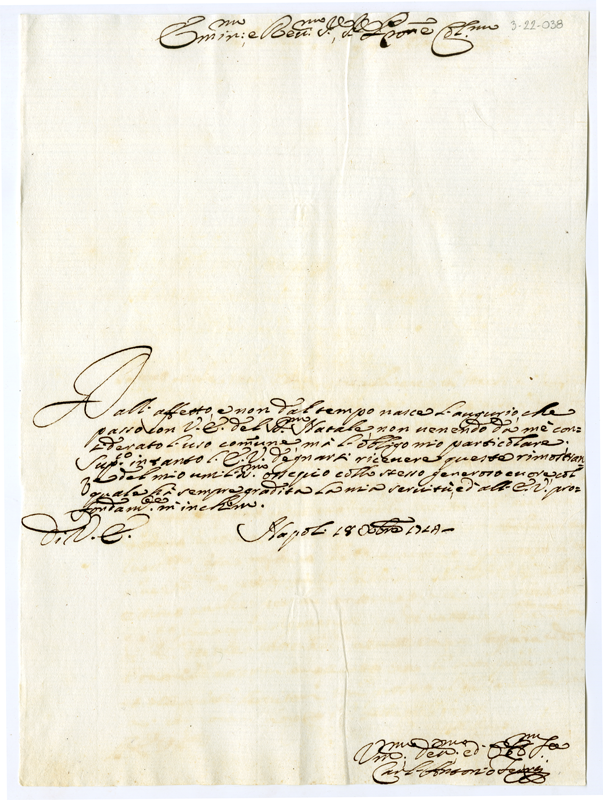 3-22-038
Emin: e Rev:mo Sig: Sig: e Prone Col:mo
Dall' affetto, e non dal tempo nasce l'augurio, che
passo con V. E. del S.mo Natale non venendo da mè con-
siderato l'uso comune mà l'obligo mio particolare.
Sup.o intanto l'E. V. degnarsi ricevere queste rimostran-
ze del mio umil.mo ossequio collo stesso generoso cuore col
quale hà sempre gradita la mia servitù, ed all' E. V. pro-
fondam.te m'inchino.
Di V. E. Napoli 18 Xbre
Um:mo dev:mo ed Obb:mo Se
Carl' Antonio